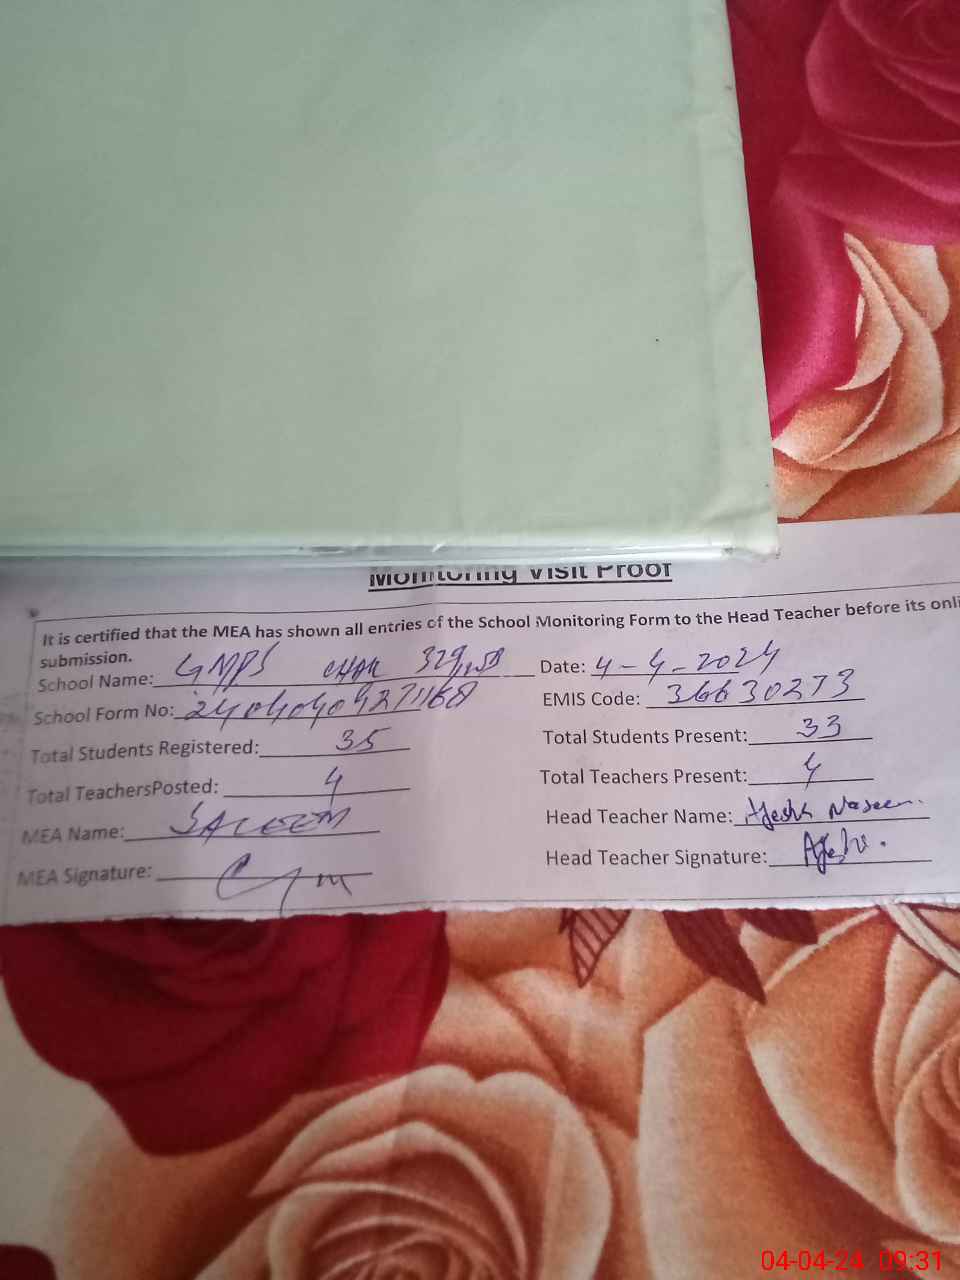 Monitoring Visit Proof
It is certified that the MEA has shown all entries of the School Monitoring Form to the Head Teacher before its onli
submission.
School Name: GMPS CHAK 329 Date: 4-4-2024
School Form No: EMIS Code: 36630273
Total Students Registered: 35 Total Students Present: 33
Total TeachersPosted: 4 Total Teachers Present: 4
MEA Name: SALEEM Head Teacher Name: Ayesha Naseem.
MEA Signature: Head Teacher Signature:
04-04-24 09:31